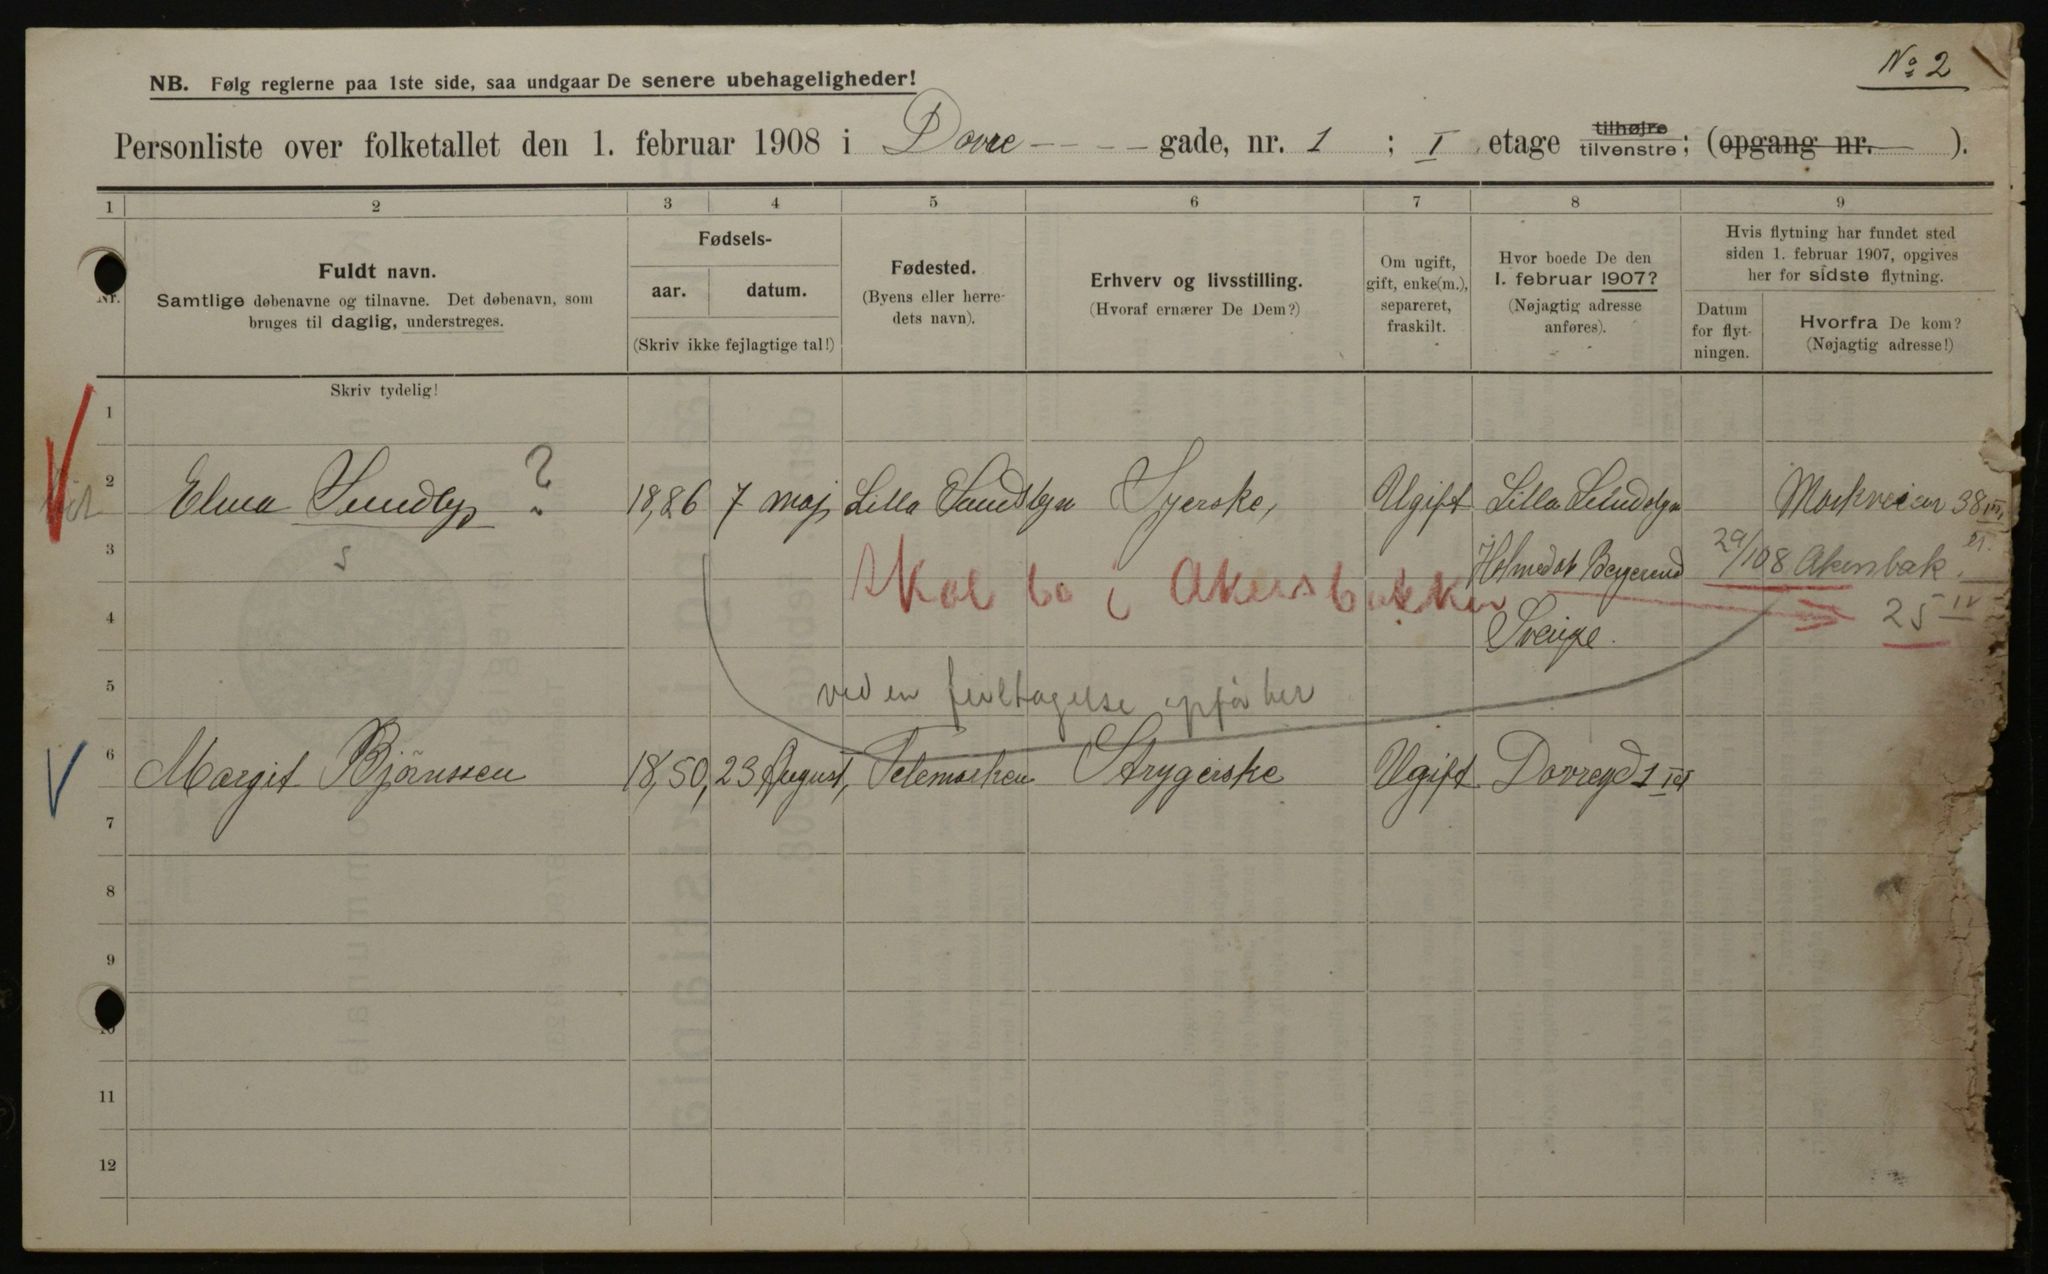 No 2
NB. Følg reglerne paa 1ste side, saa undgaar De senere ubehageligheder!
Personliste over folketallet den 1. februar 1908 i Dovre gade, nr. 1 ; I etage tilhøjre tilvenstre; (opgang nr. ).
1 2 3 4 5 6 7 8 9
Nr.
Fuldt navn.
Samtlige døbenavne og tilnavne. Det døbenavn, som
bruges til daglig, understreges.
Fødsels-
aar. datum.
(Skriv ikke fejlagtige tal!)
Fødested.
(Byens eller herre-
dets navn).
Erhverv og livsstilling.
(Hvoraf ernærer De Dem?)
Om ugift,
gift, enke(m.),
separeret,
fraskilt.
Hvor boede De den
1. februar 1907?
(Nøjagtig adresse
anføres).
Hvis flytning har fundet sted
siden 1. februar 1907, opgives
her for sidste flytning.
Datum
for flyt-
ningen.
Hvorfra De kom?
(Nøjagtig adresse!)
Skriv tydelig!
1
2 Elma Sundby ? 18,86 7 maj Lilla Sundsbyn Syerske, Ugift Lilla Sundsbyn Markveien 38 III
3 Skal bo i Akersbakken 29/1 08 Akersbak.
4 Sverige. 25 IV
5 ved en feiltagelse opført her
6 Margit Bjørnssen 18,50, 23 August, Telemarken Strygerske Ugift Dovregd 1 I
7
8
9
10
11
12